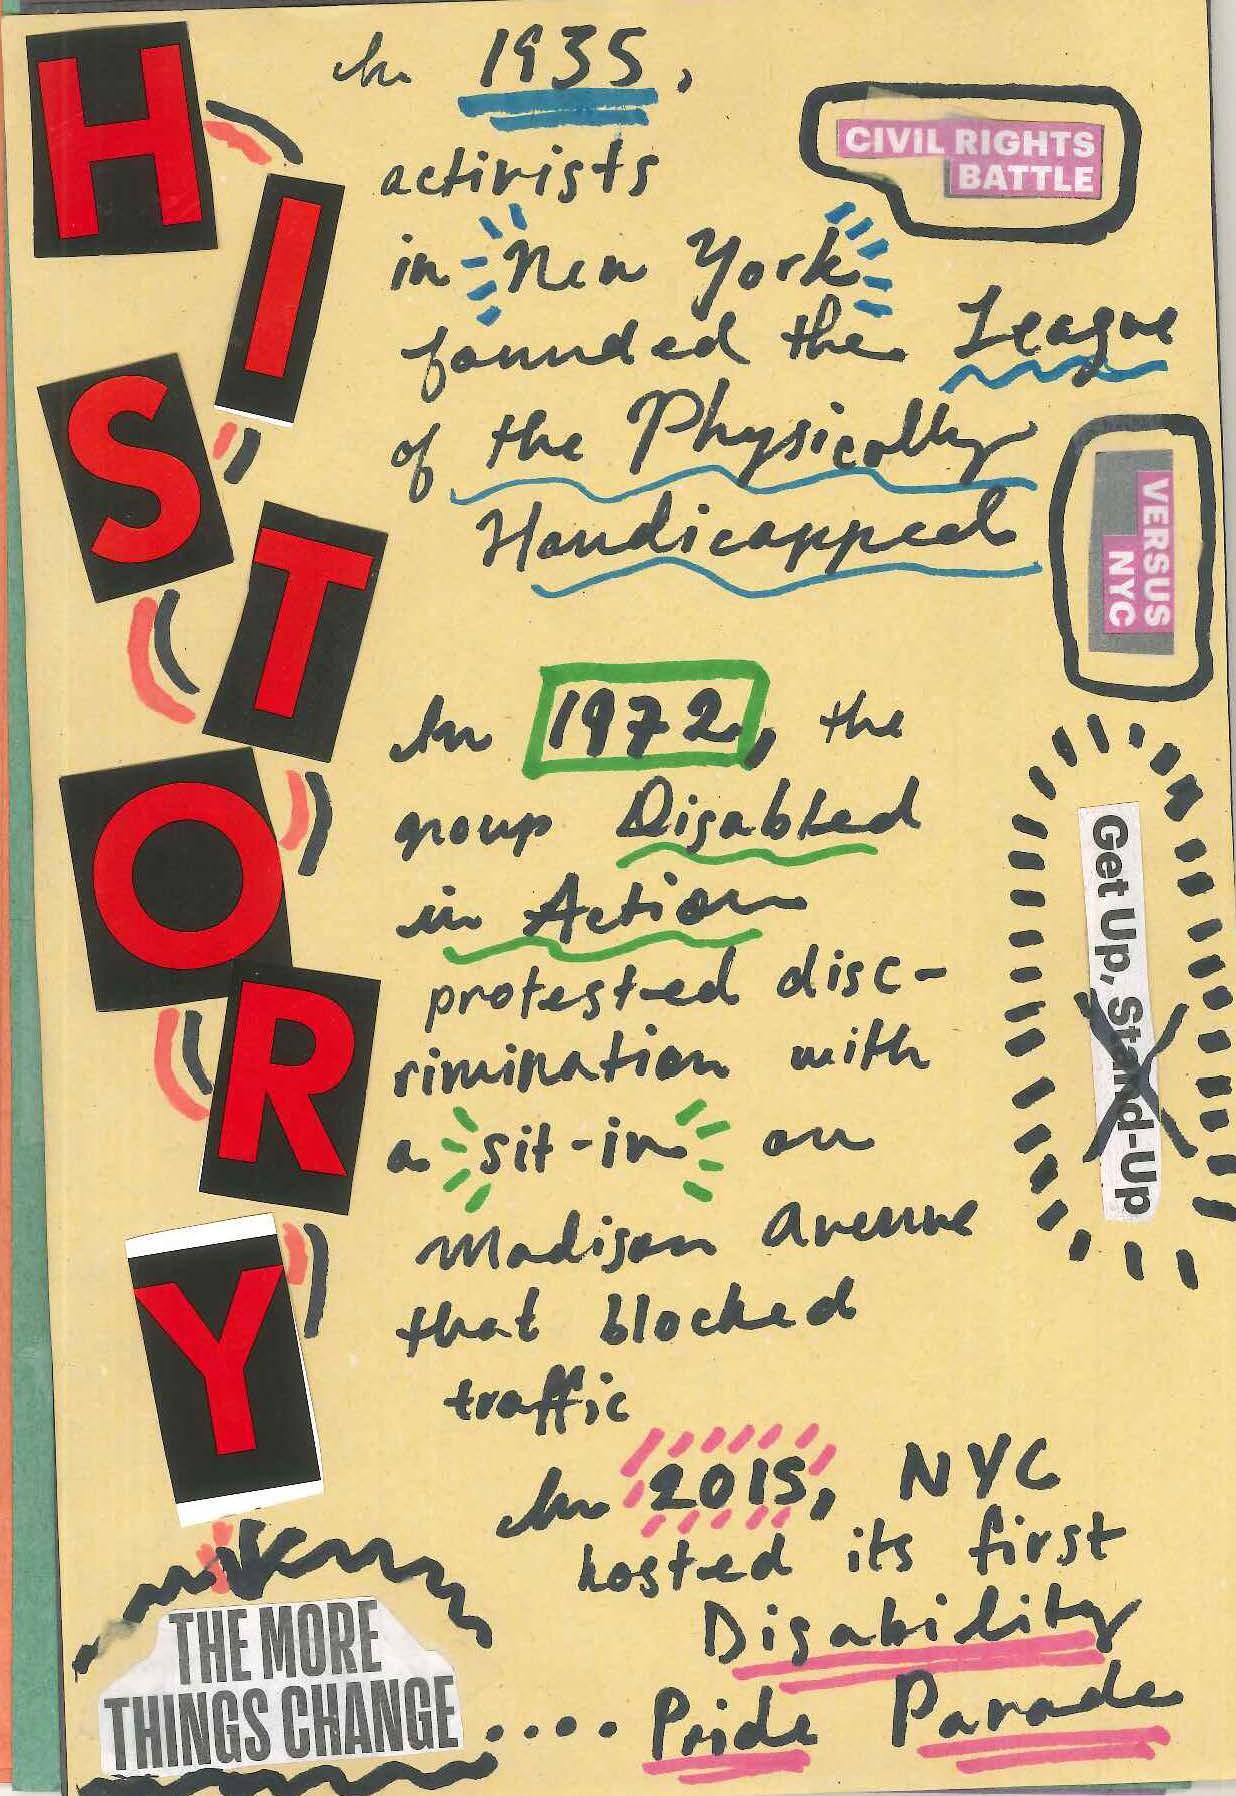 HISTORY
In 1935,
activists
in New York
founded the League
of the Physically
Handicapped
CIVIL RIGHTS
BATTLE
VERSUS
NYC
In 1972, the
group Disabled
in Action
protested disc-
rimination with
a sit-in on
Madison Avenue
that blocked
traffic
Get Up, Stand-Up
In 2015, NYC
hosted its first
Disability
Pride Parade
THE MORE
THINGS CHANGE....